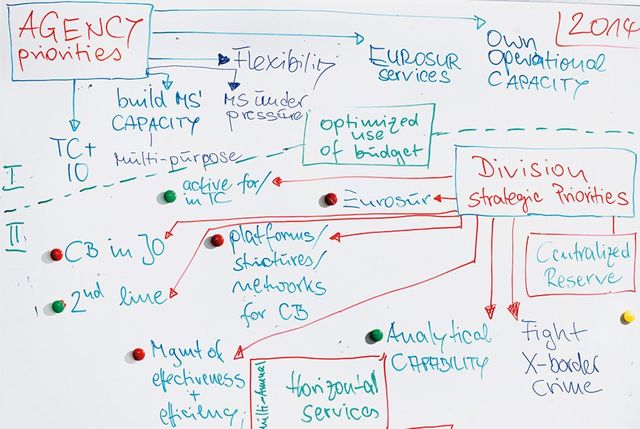 AGENCY
priorities
2014
Flexibility
EUROSUR
services
Own
Operational
CAPACITY
build MS'
CAPACITY
Multi-purpose
MS under
pressure
TC+
IO
optimized
use
of budget
I
II
Division
Strategic Priorities
active for/
in TC
Eurosur
CB in JO
platforms/
structures/
networks
for CB
2nd line
Centralized
Reserve
Mgmt of
effectiveness
+
efficiency
Analytical
CAPABILITY
Fight
X-border
crime
Multi-Annual
Horizontal
services